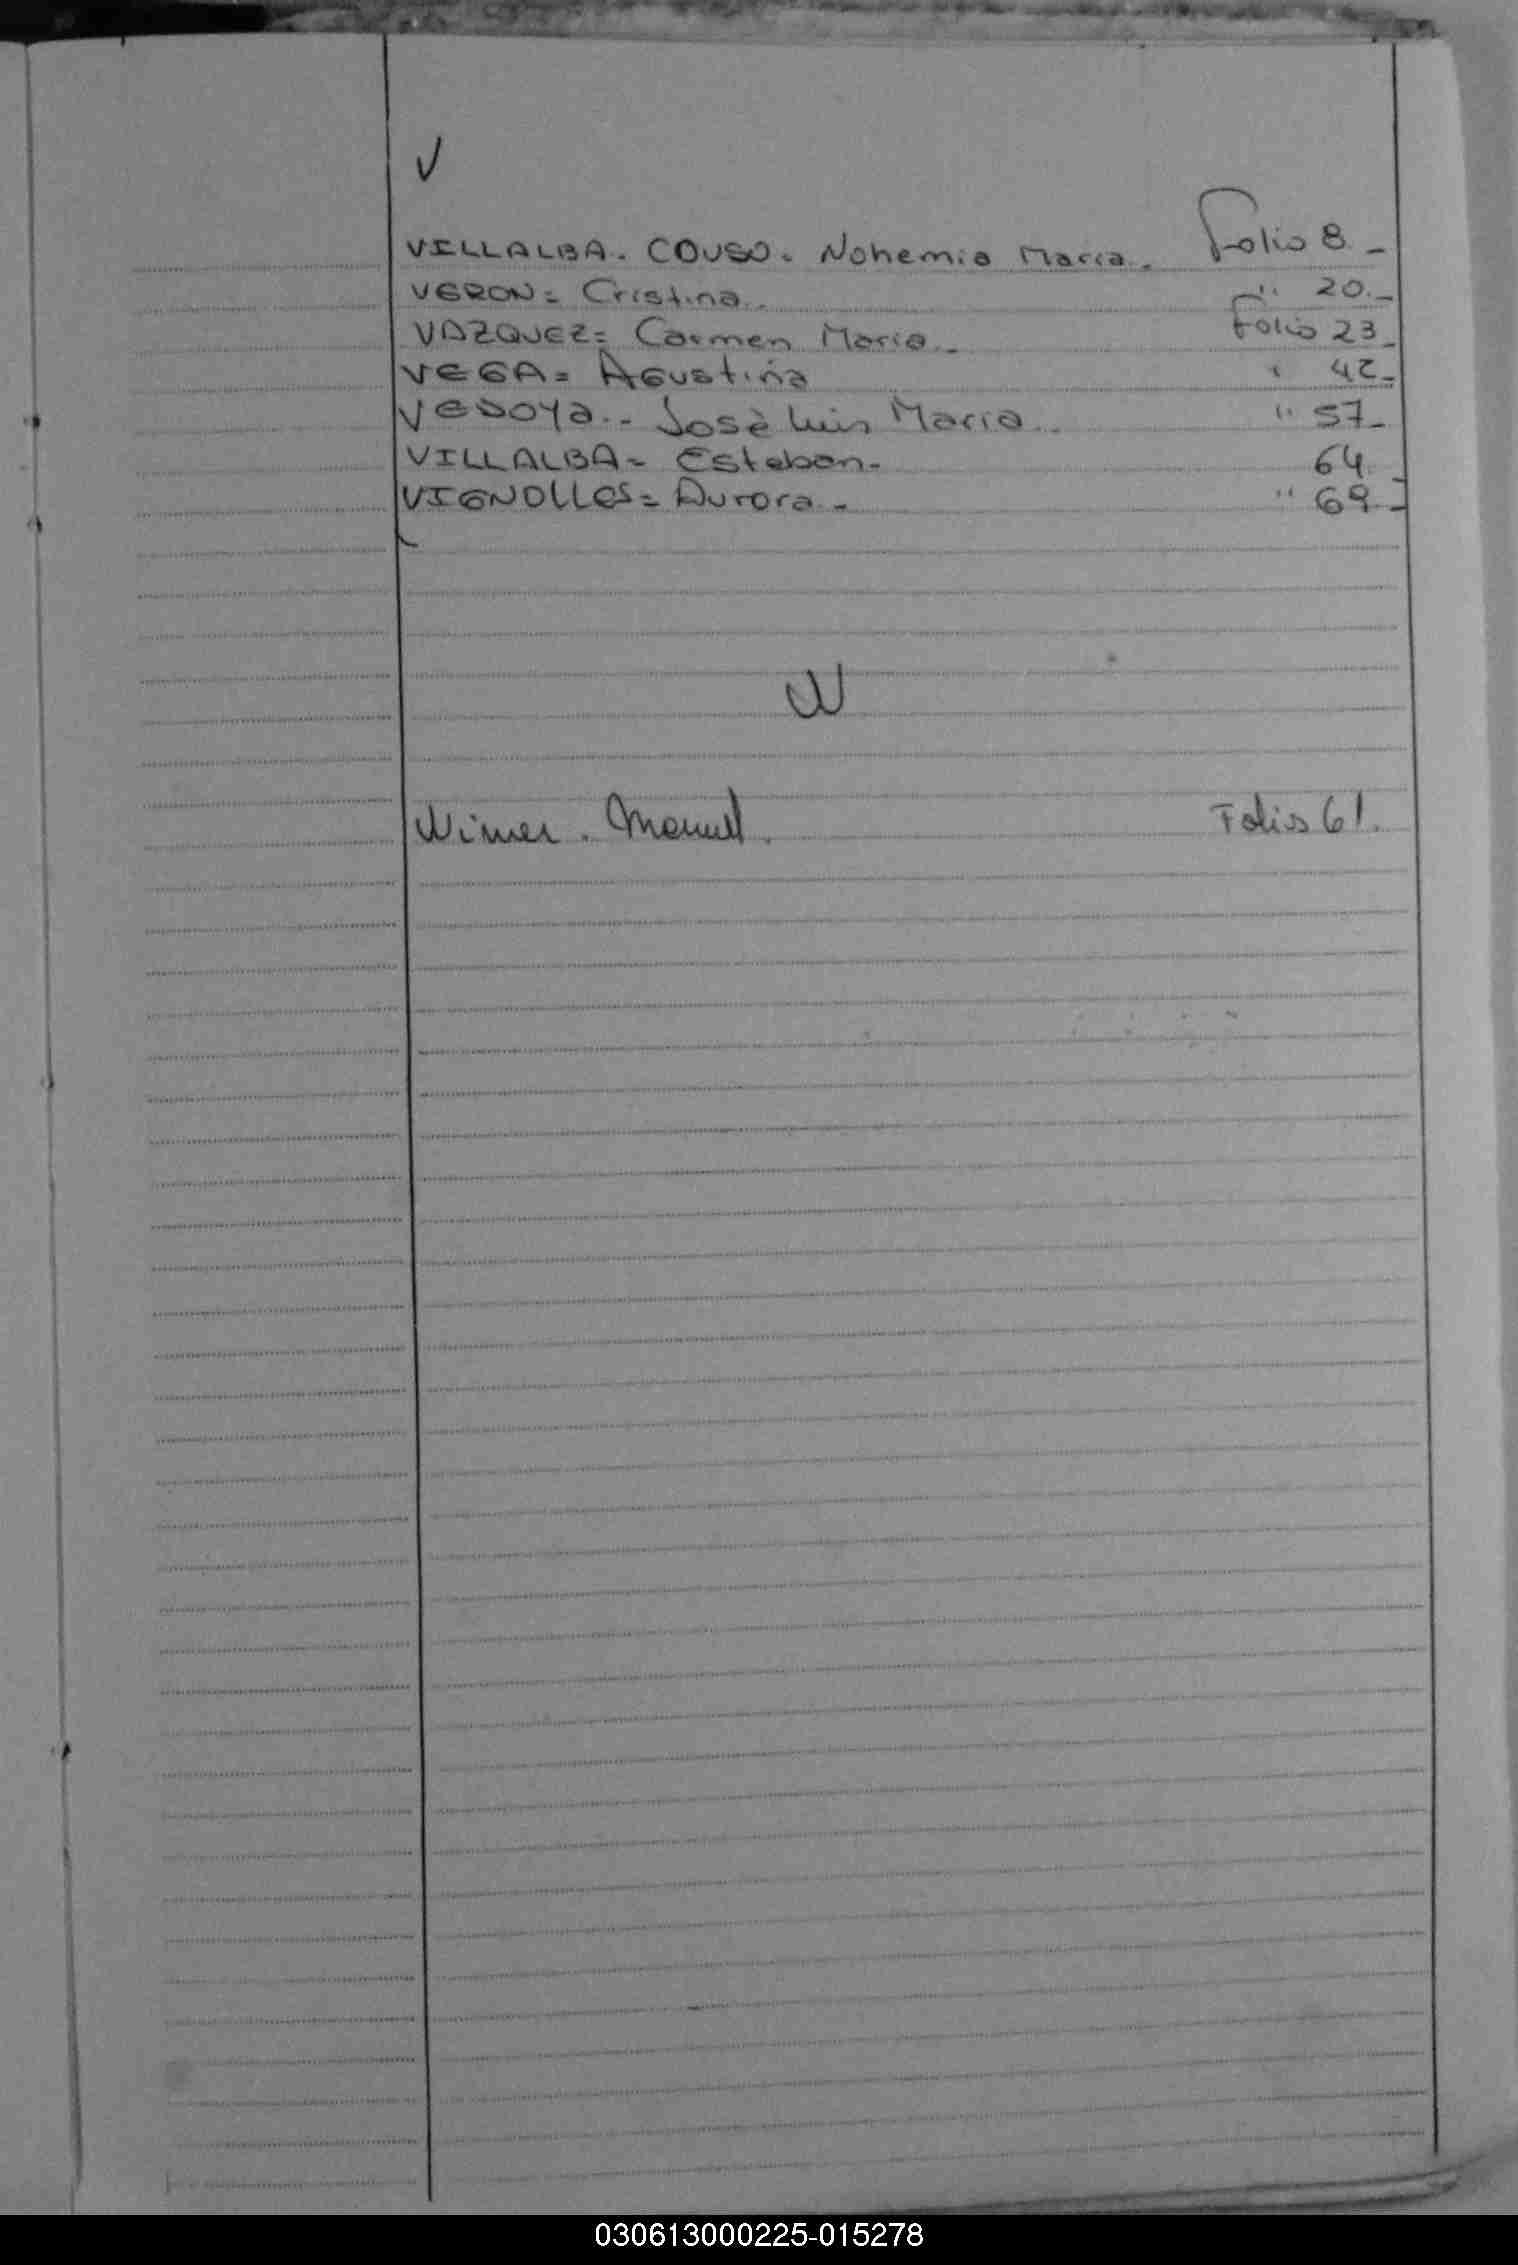 V
VILLALBA. COUSO. Nohemia Maria. Folio 8.-
VERON= Cristina.. " 20.-
VAZQUEZ= Carmen Maria.- Folio 23.-
VEGA= Agustina " 42-
VEDOYA.- Josè Luis Maria.. " 57-
VILLALBA= Esteban.- 64.-
VIGNOLLES= Aurora.- " 69.-
W
Wimer. Manuel. Folio 61.
030613000225-015278